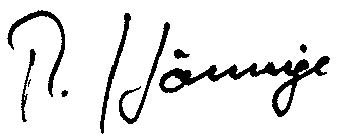 R. Hönnige